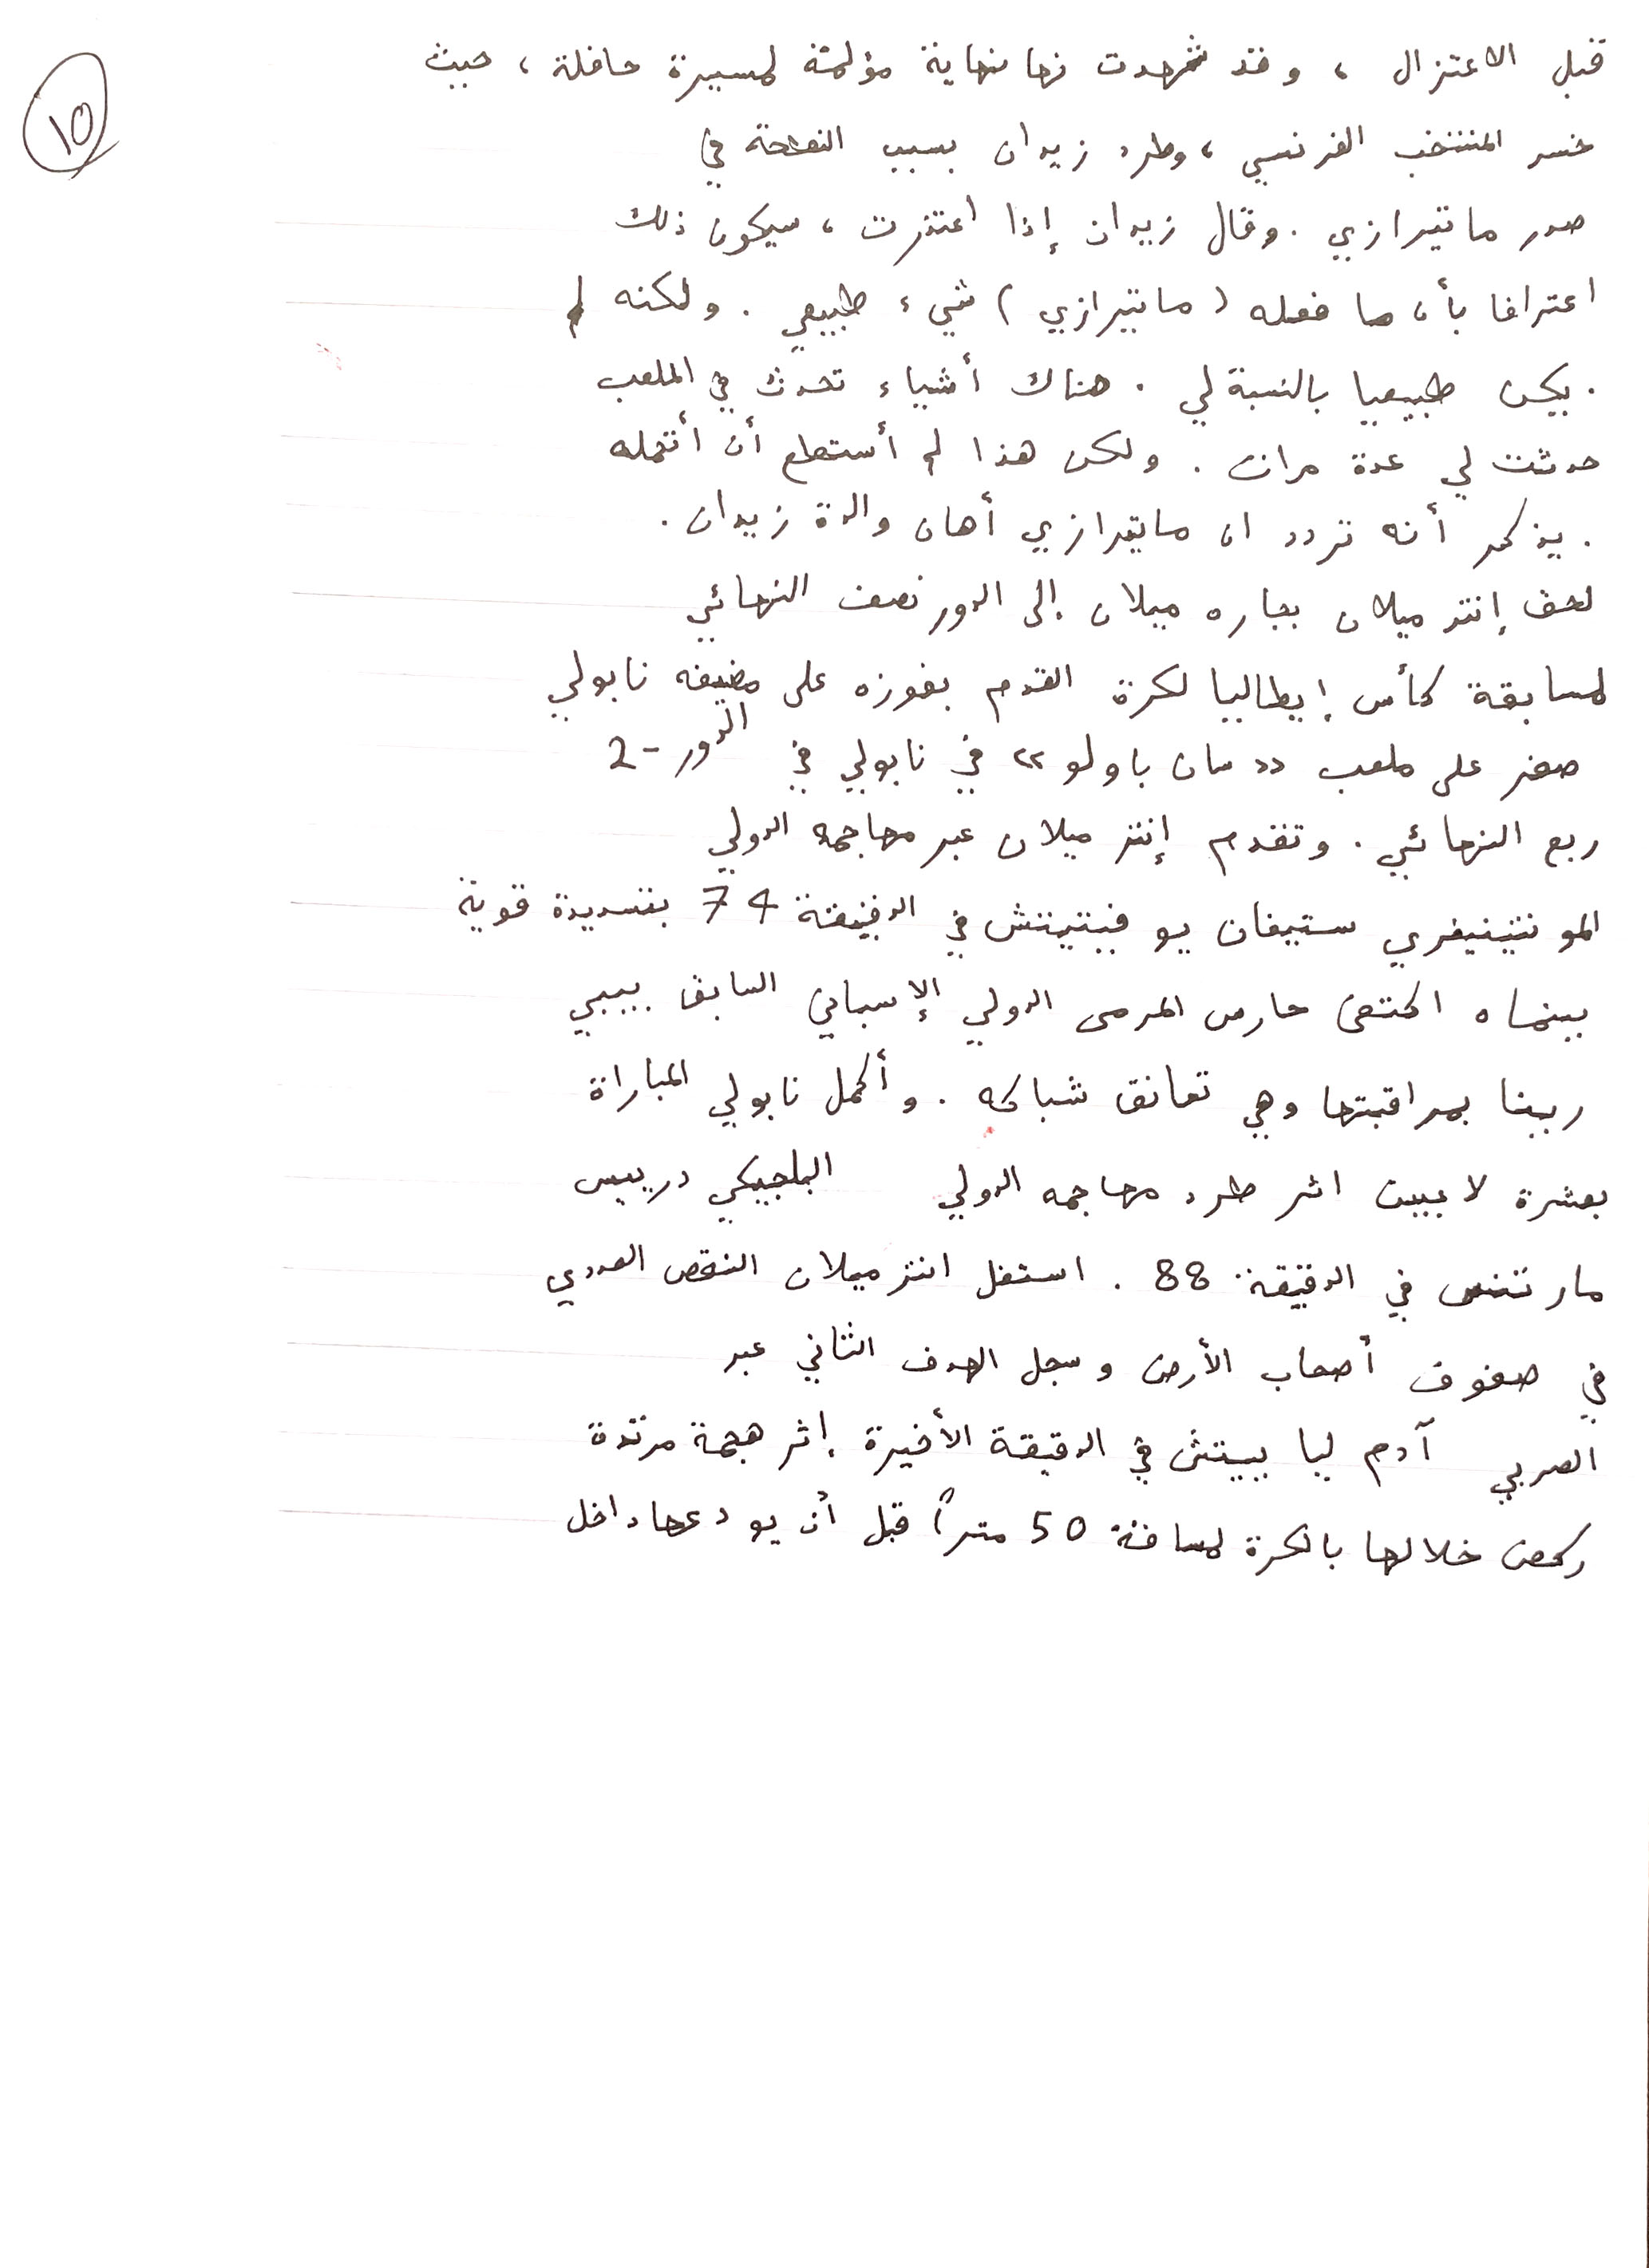 ١٥
قبل الاعتزال ، وقد شهدت نها نهاية مؤلمة لمسيرة حافلة ، حيث
خسر المنتخب الفرنسي ، وطرد زيدان بسبب النطحة في
صدر ماتيرازي . وقال زيدان إذا اعتذرت ، سيكون ذلك
اعترافا بأن ما فعله ( ماتيرازي ) شيء طبيعي . ولكنه لم
. يكن طبيعيا بالنسبة لي . هناك أشياء تحدث في الملعب
حدثت لي عدة مرات . ولكن هذا لم أستطع أن أتحمله
. يذكر أنه تردد ان ماتيرازي أهان والدة زيدان .
لحق إنتر ميلان بجاره ميلان إلى الدور نصف النهائي
لمسابقة كأس إيطاليا لكرة القدم بفوزه على مضيفه نابولي
صفر على ملعب " سان باولو " في نابولي في الدور - 2
ربع النهائي . وتقدم إنتر ميلان عبر مهاجمه الدولي
المونتينيغري ستيفان يوفيتيتش في الدقيقة 74 بتسديدة قوية
بينماه اكتفى حارس المرمى الدولي الإسباني السابق بيبي
رينا بمراقبتها وهي تعانق شباكه . وأكمل نابولي المباراة
بعشرة لاعبين اثر طرد مهاجمه الدولي البلجيكي درييس
مارتنس في الدقيقة 88 . استغل انتر ميلان النقص العددي
في صفوف أصحاب الأرض وسجل الهدف الثاني عبر
الصربي آدم ليا ييتش في الدقيقة الأخيرة إثر هجمة مرتدة
ركض خلالها بالكرة لمسافة 50 متراً قبل أن يودعها داخل